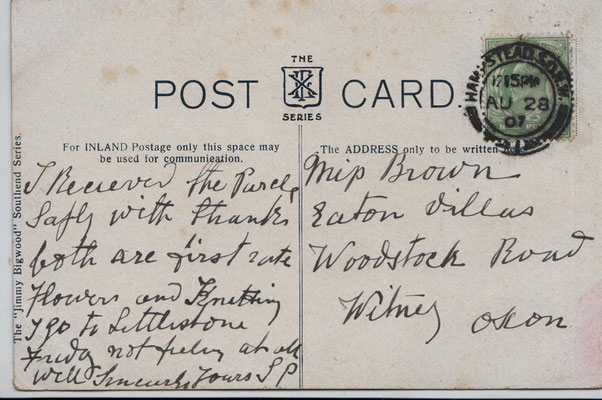 THE
POST CARD.
SERIES
HAMPSTEAD S.O. N.W.
12.15PM
AU 28
07
For INLAND Postage only this space may
be used for communication.
The ADDRESS only to be written
The "Jimmy Bigwood" Southend Series.
I Recieved the Parcel
Safly with thanks
both are first rate
Flowers and Knetting
I go to Littlestone
Friday not feeling at all
well Sincerely Yours S P
Miss Brown
Eaton Villas
Woodstock Road
Witney
Oxon